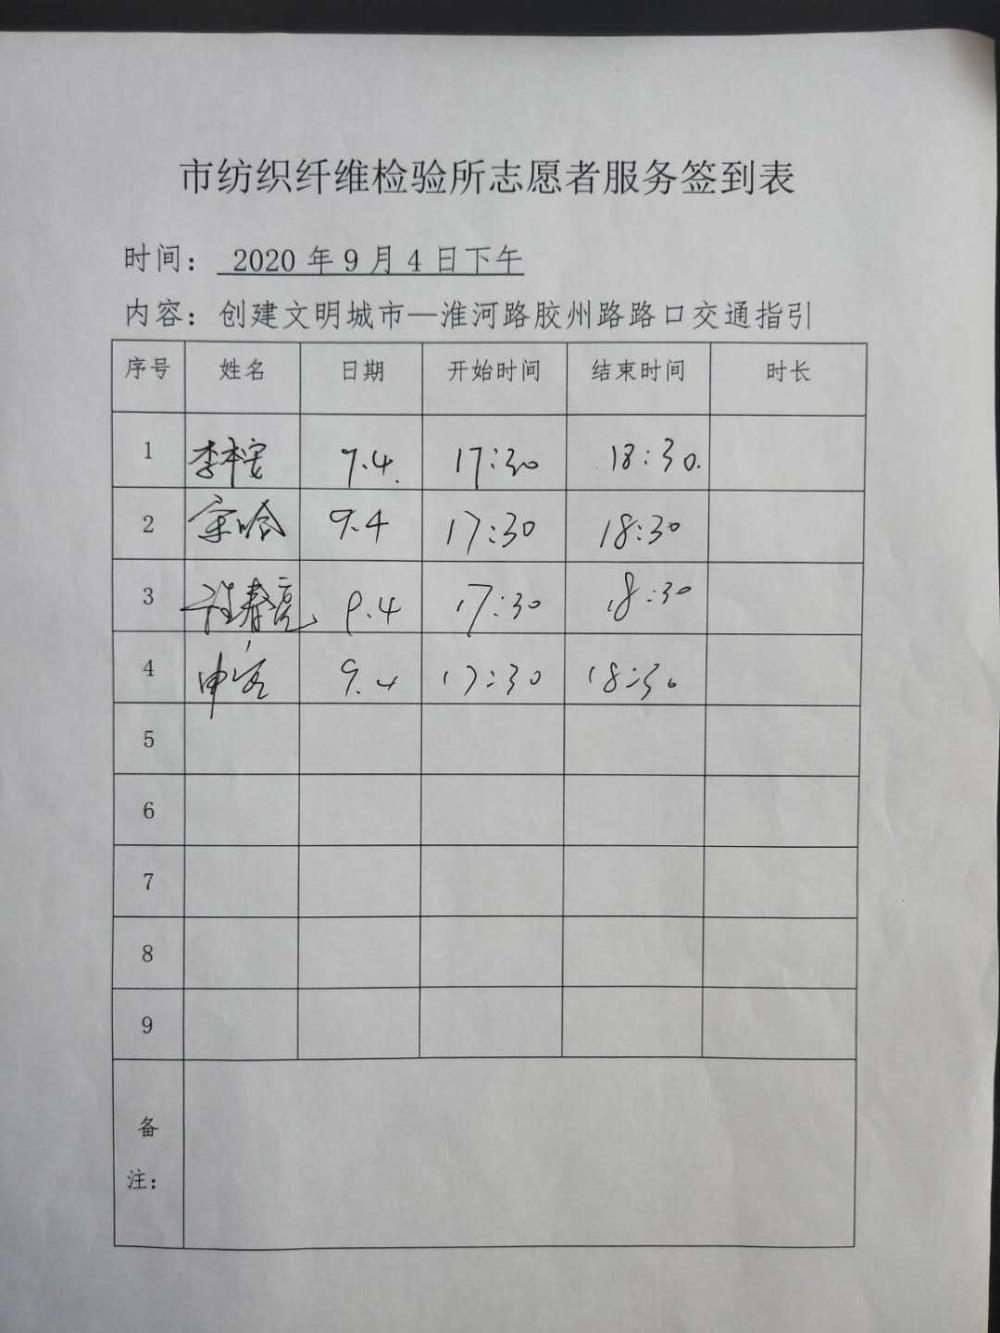 市纺织纤维检验所志愿者服务签到表
时间： 2020 年 9 月 4 日下午
内容：创建文明城市—淮河路胶州路路口交通指引
序号 姓名 日期 开始时间 结束时间 时长
1 9.4. 17:30 18:30.
2 9.4 17:30 18:30
3 9.4 17:30 18:30
4 9.4 17:30 18:30
5
6
7
8
9
备
注：